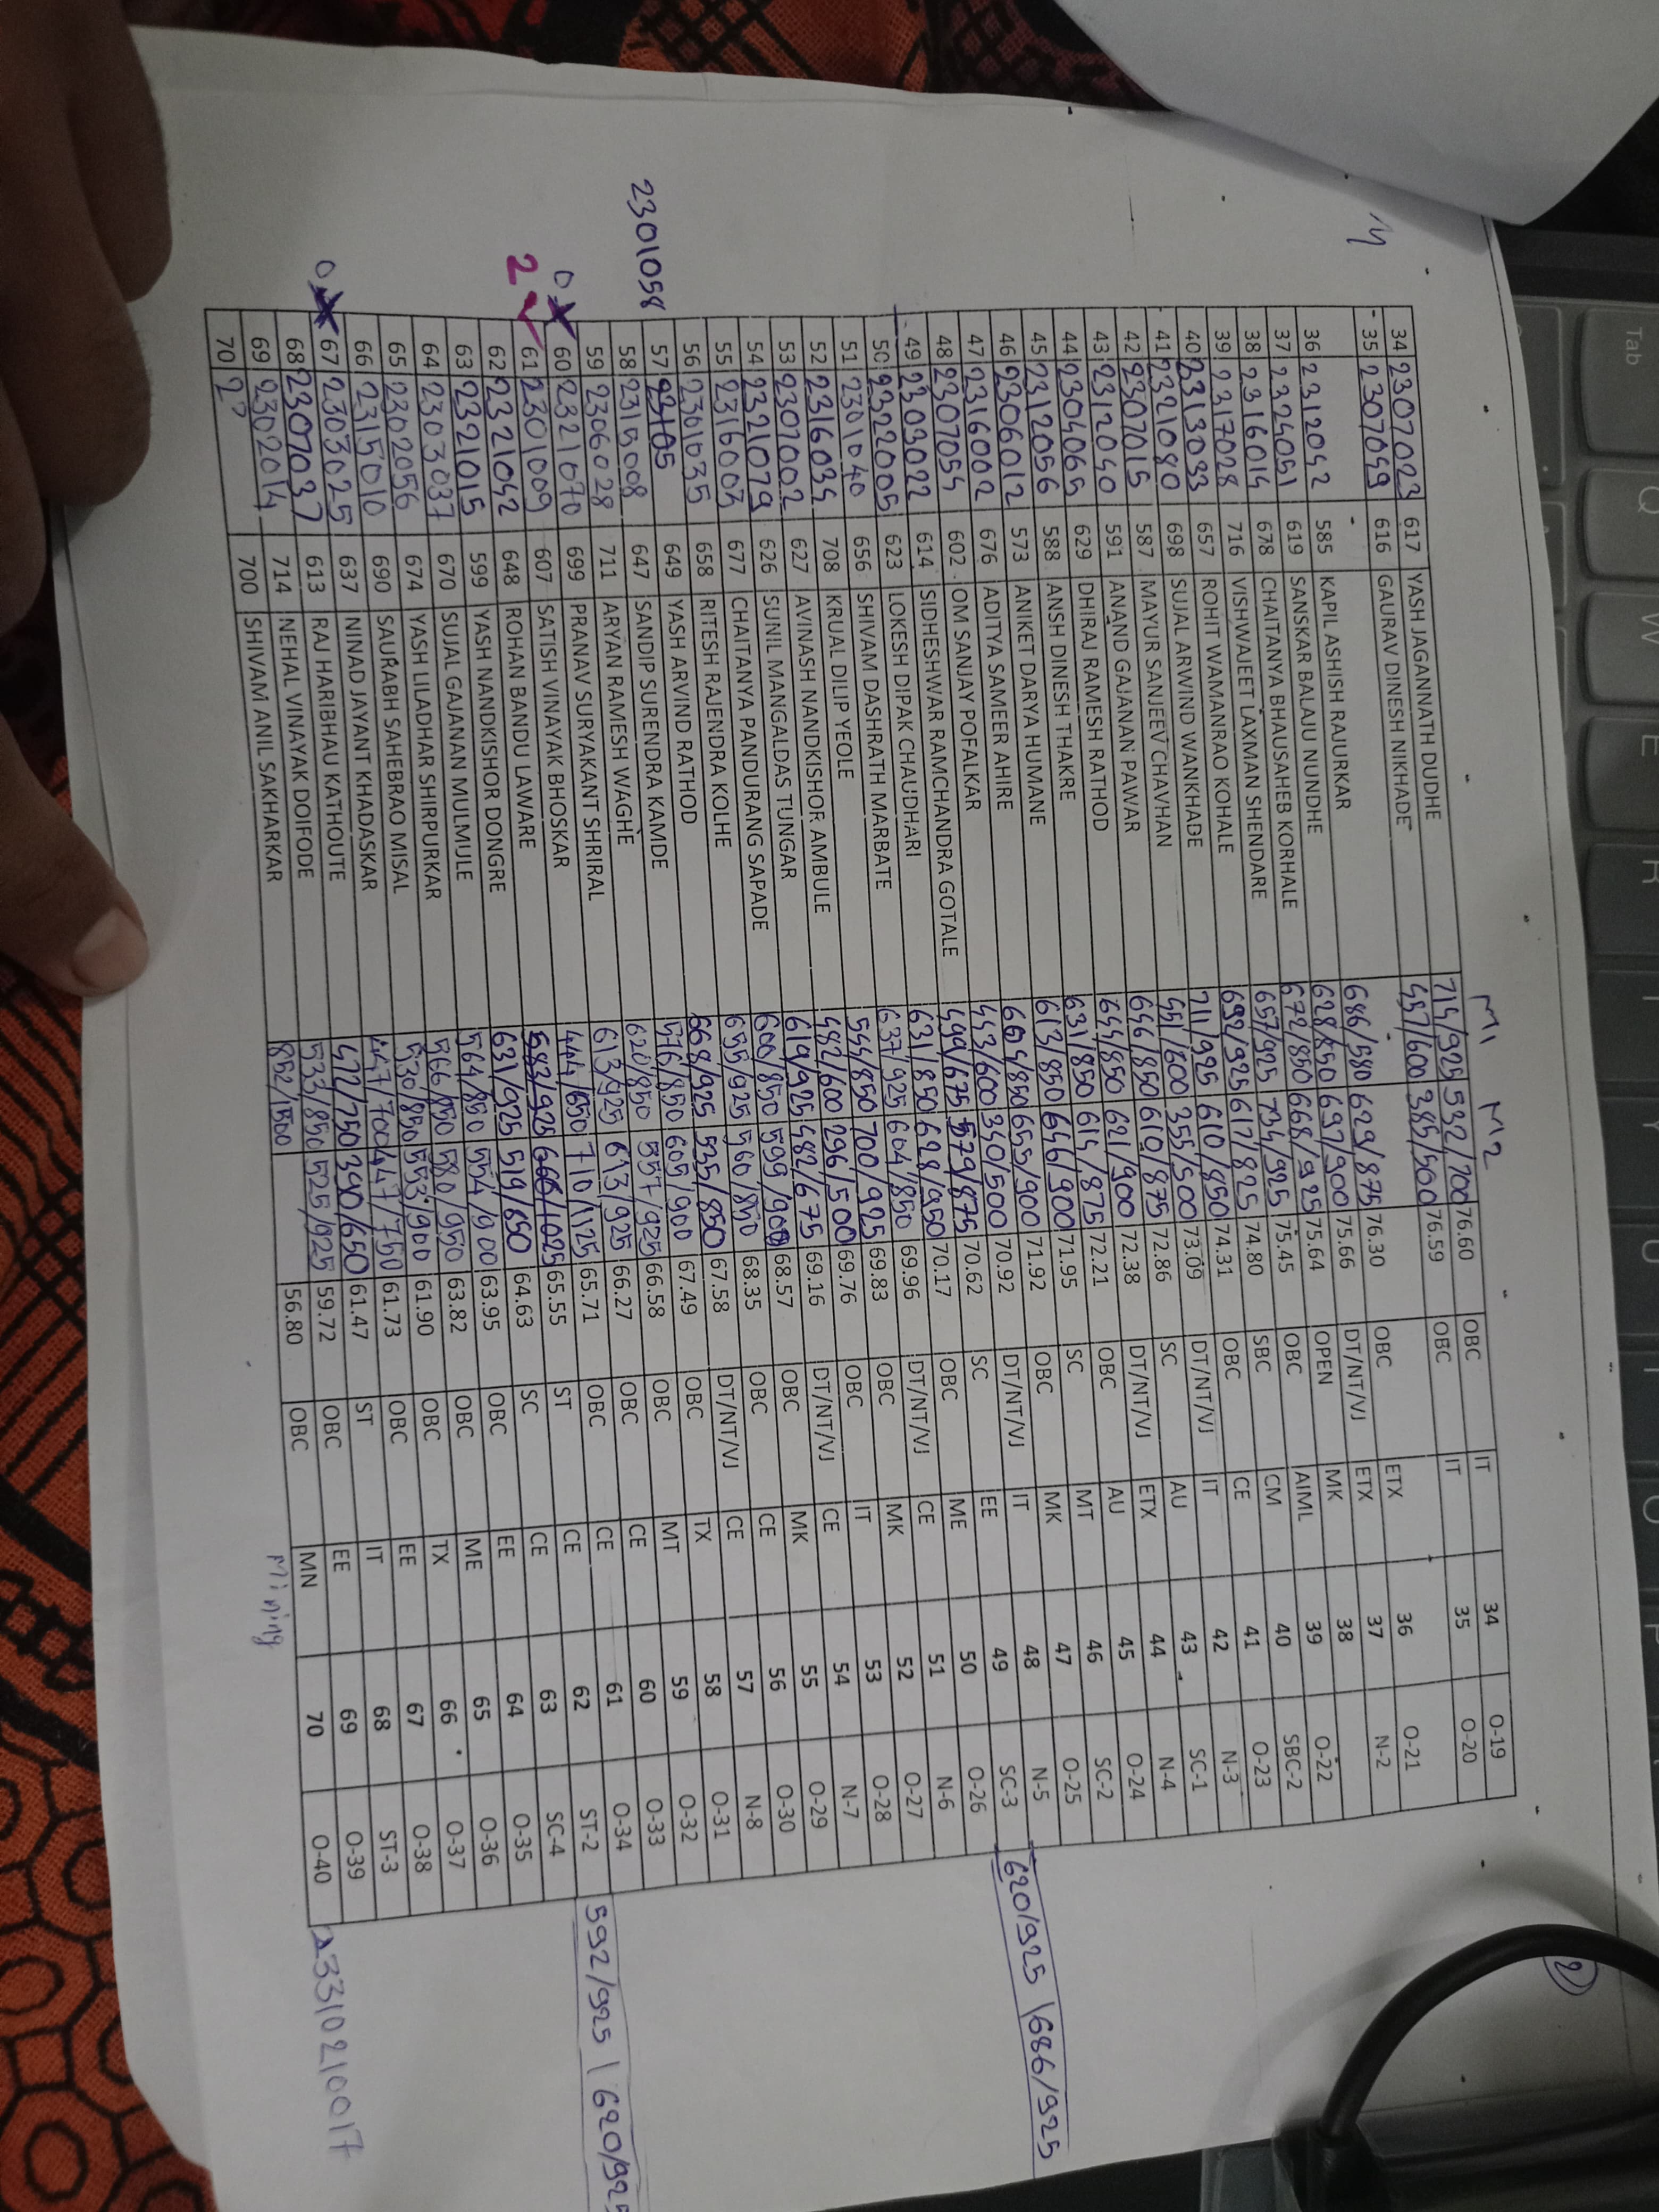 Tab Q W E R T Y U I O P
2
M1 M2
34 2307023 617 YASH JAGANNATH DUDHE 714/925 532/700 76.60 OBC IT 34 O-19
35 2307049 616 GAURAV DINESH NIKHADE 457/600 385/500 76.59 OBC IT 35 O-20
36 2312042 585 KAPIL ASHISH RAJURKAR 686/580 629/875 76.30 OBC ETX 36 O-21
37 2324051 619 SANSKAR BALAJU NUNDHE 628/850 697/900 75.66 DT/NT/VJ ETX 37 N-2
38 2316014 678 CHAITANYA BHAUSAHEB KORHALE 672/850 668/925 75.64 OPEN MK 38
39 2317028 716 VISHWAJEET LAXMAN SHENDARE 657/925 734/925 75.45 OBC AIML 39 O-22
40 2313033 657 ROHIT WAMANRAO KOHALE 692/925 617/825 74.80 SBC CM 40 SBC-2
41 2321080 698 SUJAL ARWIND WANKHADE 711/925 610/850 74.31 OBC CE 41 O-23
42 2307015 587 MAYUR SANJEEV CHAVHAN 451/600 355/500 73.09 DT/NT/VJ IT 42 N-3
43 2312040 591 ANAND GAJANAN PAWAR 646/850 610/875 72.86 SC AU 43 SC-1
44 2304065 629 DHIRAJ RAMESH RATHOD 644/850 621/900 72.38 DT/NT/VJ ETX 44 N-4
45 2312056 588 ANSH DINESH THAKRE 631/850 614/875 72.21 OBC AU 45 O-24
46 2306012 573 ANIKET DARYA HUMANE 613/850 646/900 71.95 SC MT 46 SC-2
47 2316002 676 ADITYA SAMEER AHIRE 604/850 655/900 71.92 OBC MK 47 O-25
48 2307054 602 OM SANJAY POFALKAR 443/600 340/500 70.92 DT/NT/VJ IT 48 N-5 620/925 | 686/925
49 2303022 614 SIDHESHWAR RAMCHANDRA GOTALE 499/675 579/875 70.62 SC EE 49 SC-3
50 2322005 623 LOKESH DIPAK CHAUDHARI 631/850 628/950 70.17 OBC ME 50 O-26
51 2301040 656 SHIVAM DASHRATH MARBATE 637/925 604/850 69.96 DT/NT/VJ CE 51 N-6
52 2316034 708 KRUAL DILIP YEOLE 544/850 700/925 69.83 OBC MK 52 O-27
53 2307002 627 AVINASH NANDKISHOR AMBULE 482/600 296/500 69.76 OBC IT 53 O-28
54 2321079 626 SUNIL MANGALDAS TUNGAR 619/925 482/675 69.16 DT/NT/VJ CE 54 N-7
55 2316003 677 CHAITANYA PANDURANG SAPADE 600/850 599/900 68.57 OBC MK 55 O-29
56 2301035 658 RITESH RAJENDRA KOLHE 655/925 560/850 68.35 OBC CE 56 O-30
2301058 57 23105 649 YASH ARVIND RATHOD 668/925 535/850 67.58 DT/NT/VJ CE 57 N-8
58 2315008 647 SANDIP SURENDRA KAMDE 576/850 605/900 67.49 OBC TX 58 O-31
59 2306028 711 ARYAN RAMESH WAGHE 620/850 557/925 66.58 OBC MT 59 O-32
0 60 2321070 699 PRANAV SURYAKANT SHRIRAL 613/925 613/925 66.27 OBC CE 60 O-33
2 61 2301009 607 SATISH VINAYAK BHOSKAR 444/650 710/1125 65.71 OBC CE 61 O-34
62 2321042 648 ROHAN BANDU LAWARE 583/925 666/1025 65.55 ST CE 62 ST-2 592/925 | 620/925
63 2321015 599 YASH NANDKISHOR DONGRE 631/925 519/850 64.63 SC CE 63 SC-4
64 2303037 670 SUJAL GAJANAN MULMULE 564/850 554/900 63.95 OBC EE 64 O-35
65 2302056 674 YASH LILADHAR SHIRPURKAR 566/850 580/950 63.82 OBC ME 65 O-36
66 2315010 690 SAURABH SAHEBRAO MISAL 530/850 553/900 61.90 OBC TX 66 O-37
0 67 2303025 637 NINAD JAYANT KHADASKAR 447/700 447/750 61.73 OBC EE 67 O-38
68 2307037 613 RAJ HARIBHAU KATHOUTE 472/750 390/650 61.47 ST IT 68 ST-3
69 2302014 714 NEHAL VINAYAK DOIFODE 533/850 525/925 59.72 OBC EE 69 O-39
70 23 700 SHIVAM ANIL SAKHARKAR 852/1500 56.80 OBC MN 70 O-40 23310210017
Mining